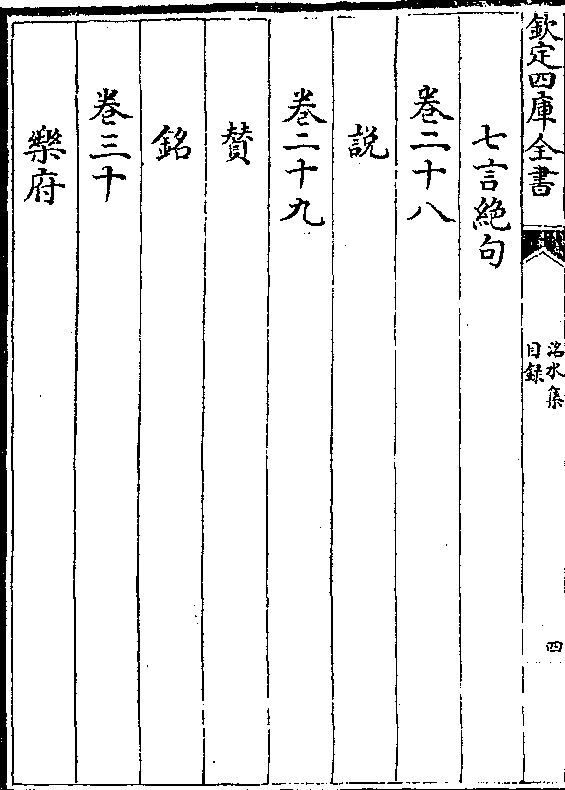 欽定四庫全書
洺水集
目録
四
七言絶句
卷二十八
説
卷二十九
賛
銘
卷三十
樂府